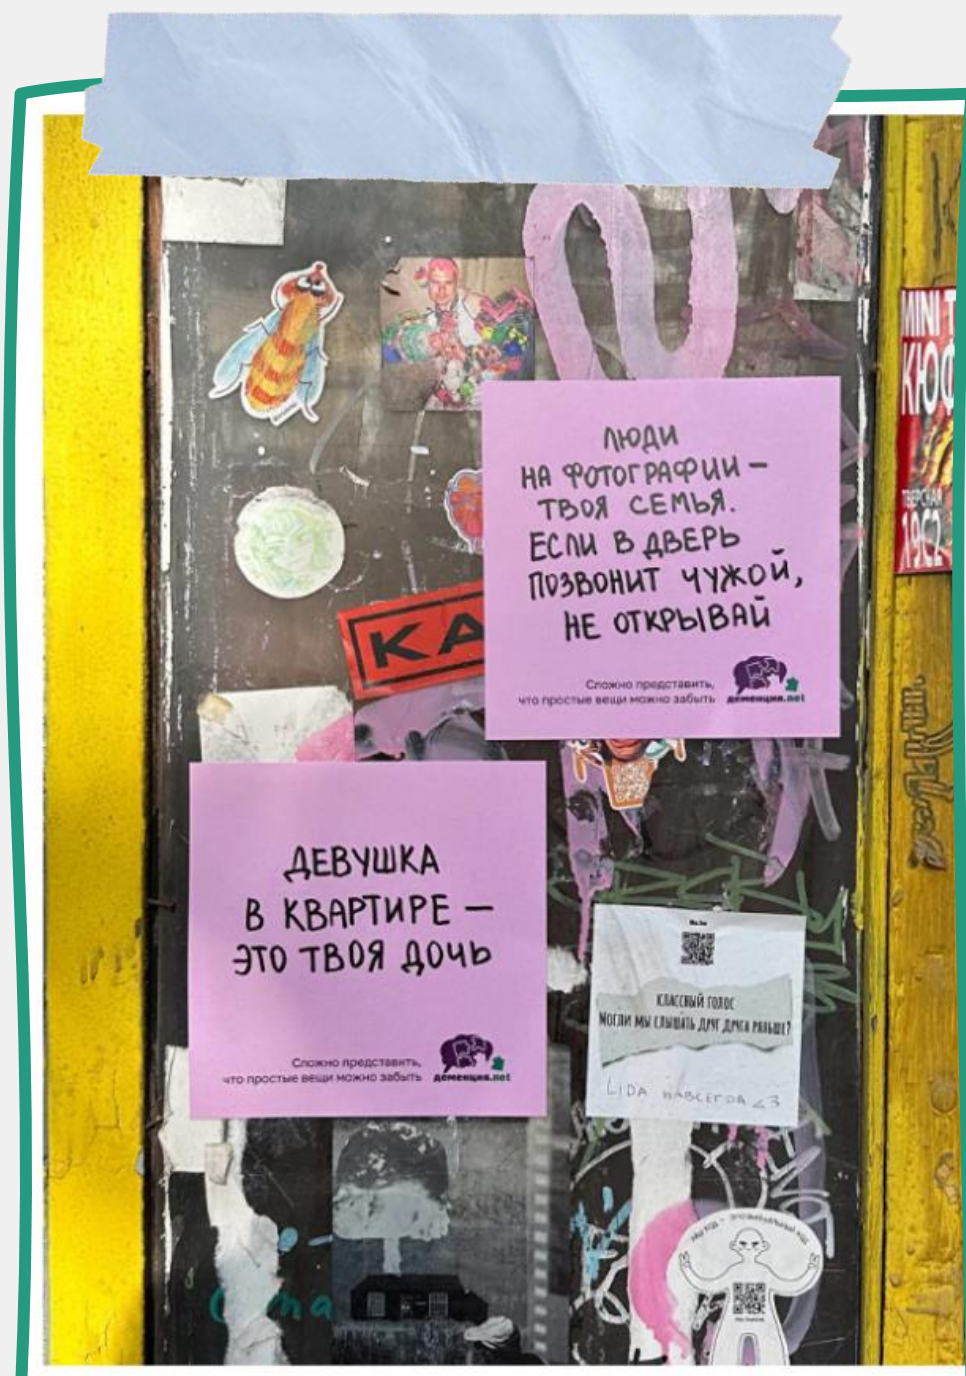 ЛЮДИ
НА ФОТОГРАФИИ –
ТВОЯ СЕМЬЯ.
ЕСЛИ В ДВЕРЬ
ПОЗВОНИТ ЧУЖОЙ,
НЕ ОТКРЫВАЙ
Сложно представить,
что простые вещи можно забыть
деменция.net
MINI
КЮФ
ТВЕРСКАЯ
19С2
КА
ДЕВУШКА
В КВАРТИРЕ –
ЭТО ТВОЯ ДОЧЬ
Сложно представить,
что простые вещи можно забыть
деменция.net
КЛАССНЫЙ ГОЛОС
МОГЛИ МЫ СЛЫШАТЬ ДРУГ ДРУГА РАНЬШЕ?
LIDA НАВСЕГДА <3